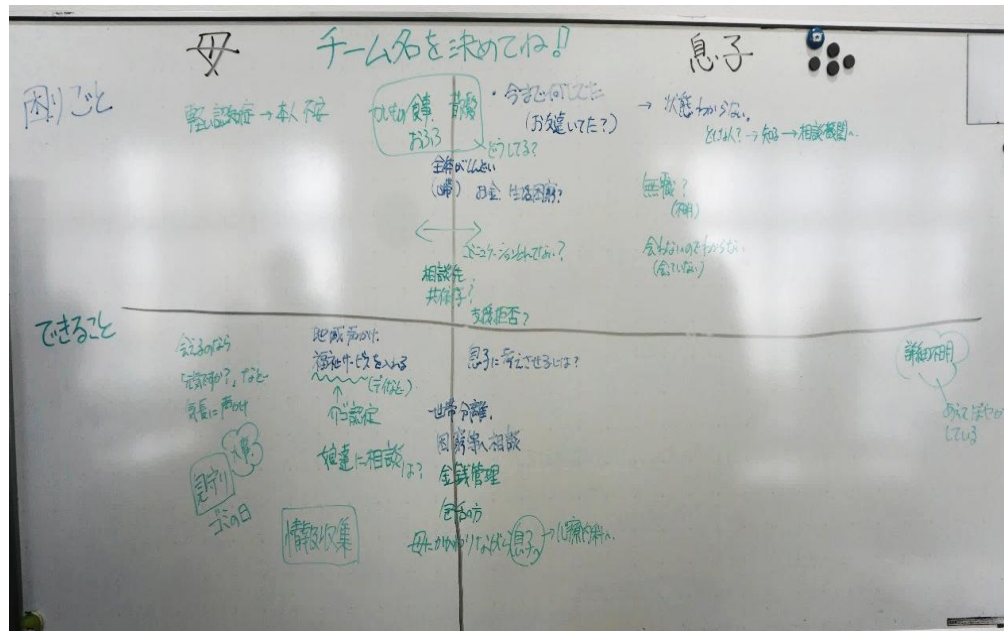 母
チーム名を決めてね!!
息子
困りごと
軽認知症→本人不安
食事、
おふろ
・今まで何してた
(お父違いてた?)
どうしてる?
→ 状態わからない。
どんな人?→知る→相談機関へ
全体がしんどい
お金、生活困窮?
無職?
(不明)
コミュニケーションとれてない?
会わないのでわからない
(会っていない)
相談先、
共依存?
支援拒否?
できること
会えるのなら
「元気ですか?」など
気長に声かけ
大事
見守り
ゴミの日
地域声かけ
福祉サービスを入れる
(デイなど)
↑
介ゴ認定
娘達に相談は?
情報収集
息子に考えさせるには?
世帯分離、
困窮等へ相談
金銭管理
包括の方
母にかかわりながら息子へ→心療内科へ
詳細不明
あえてぼやかしている